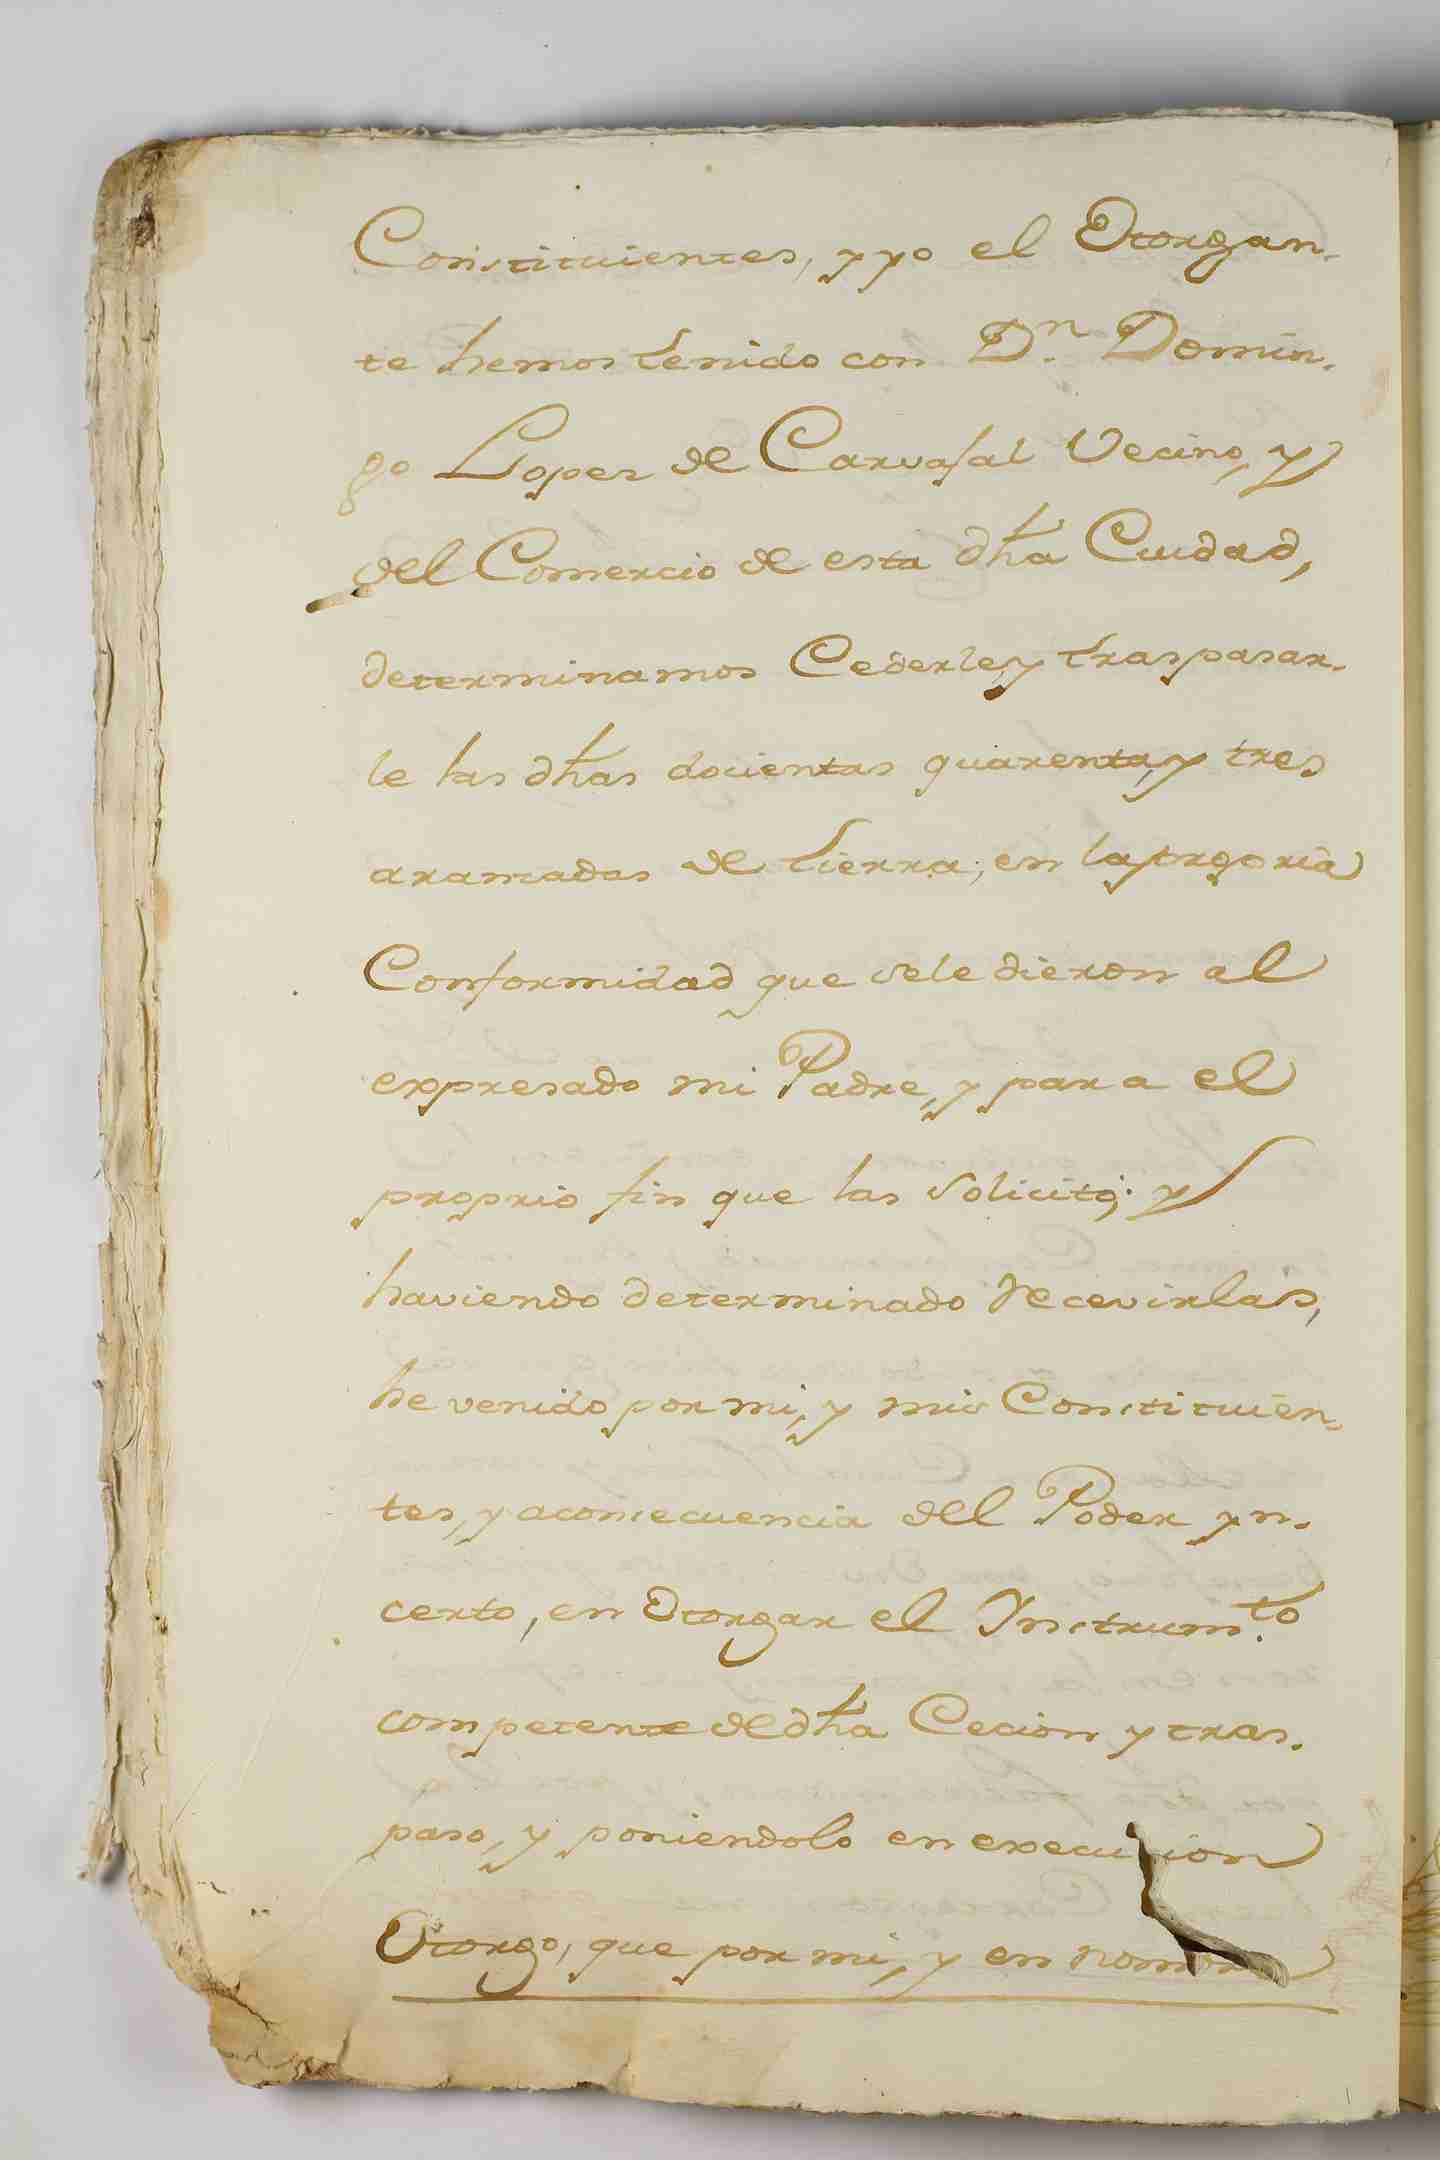 Constituientes, y yo el Otorgan-
te hemos tenido con Dn. Domin-
go Lopez de Carvajal Vecino, y
del Comercio de esta dha Ciudad,
determinamos Cederle, y traspasar-
le las dhas docientas quarenta, y tres
aranzadas de tierra; en la propria
Conformidad que se le dieron al
expresado mi Padre, y para el
proprio fin que las solicitó; y
haviendo determinado recevirlas,
he venido por mi, y mis Constituien-
tes, y aconsecuencia del Poder yn-
certo, en Otorgar el Instrumto.
competente de dha Cecion y tras-
paso, y poniendolo en execucion
Otorgo, que por mi, y en nombre